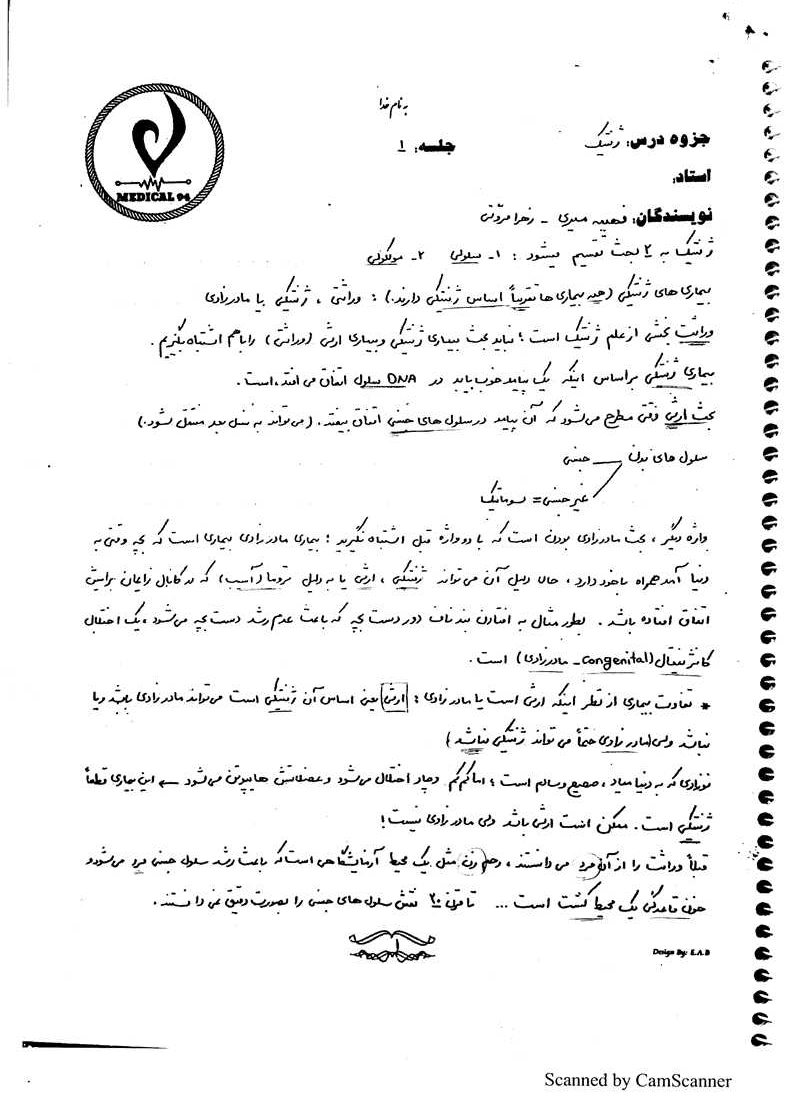 به نام خدا
جزوه درس: ژنتیک جلسه: ۱
استاد:
نویسندگان: فهیمه میری - زهرا مروتی
MEDICAL 94
ژنتیک به ۲ بحث تقسیم میشود: ۱- سلولی ۲- مولکولی
بیماری های ژنتیکی (همه بیماری ها تقریباً اساس ژنتیکی دارند.): وراثتی، ژنتیکی یا مادرزادی
وراثت بخشی از علم ژنتیک است؛ نباید بحث بیماری ژنتیکی و بیماری ارثی (وراثتی) را با هم اشتباه بگیریم.
بیماری ژنتیکی بر اساس اینکه یک پیامد خوب یا بد در DNA سلول اتفاق می افتد، است.
بحث ارثی وقتی مطرح می شود که آن پیامد در سلول های جنسی اتفاق بیفتد. (می تواند به نسل بعد منتقل شود.)
سلول های بدن جنسی
غیرجنسی = سوماتیک
واژه دیگر، بحث مادرزادی بودن است که با دو واژه قبل اشتباه نگیرید؛ بیماری مادرزادی بیماری است که بچه وقتی به
دنیا آمد همراه با خود دارد، حال دلیل آن می تواند ژنتیکی، ارثی یا به دلیل تروما (آسیب) که در کانال زایمان برایش
اتفاق افتاده باشد. بطور مثال به افتادن بند ناف دور دست بچه که باعث عدم رشد دست بچه می شود، یک اختلال
کانژنیتال (congenital - مادرزادی) است.
* تفاوت بیماری از نظر اینکه ارثی است یا مادرزادی: ارثی یعنی اساس آن ژنتیکی است می تواند مادرزادی باشد و یا
نباشد ولی (مادرزادی حتماً می تواند ژنتیکی نباشد)
نوزادی که به دنیا میاد، صحیح و سالم است؛ اما کم کم دچار اختلال می شود و عضلاتش هایپرتن می شود ← این بیماری قطعاً
ژنتیکی است. ممکن است ارثی باشد ولی مادرزادی نیست!
قبلاً وراثت را از آن مرد می دانستند، رحم زن مثل یک محیط آزمایشگاهی است که باعث رشد سلول جنسی مرد می شود و
خون قاعدگی یک محیط کشت است ... تا قرن ۲۰ نقش سلول های جنسی را بصورت دقیق نمی دانستند.
Design By: E.A.B
Scanned by CamScanner